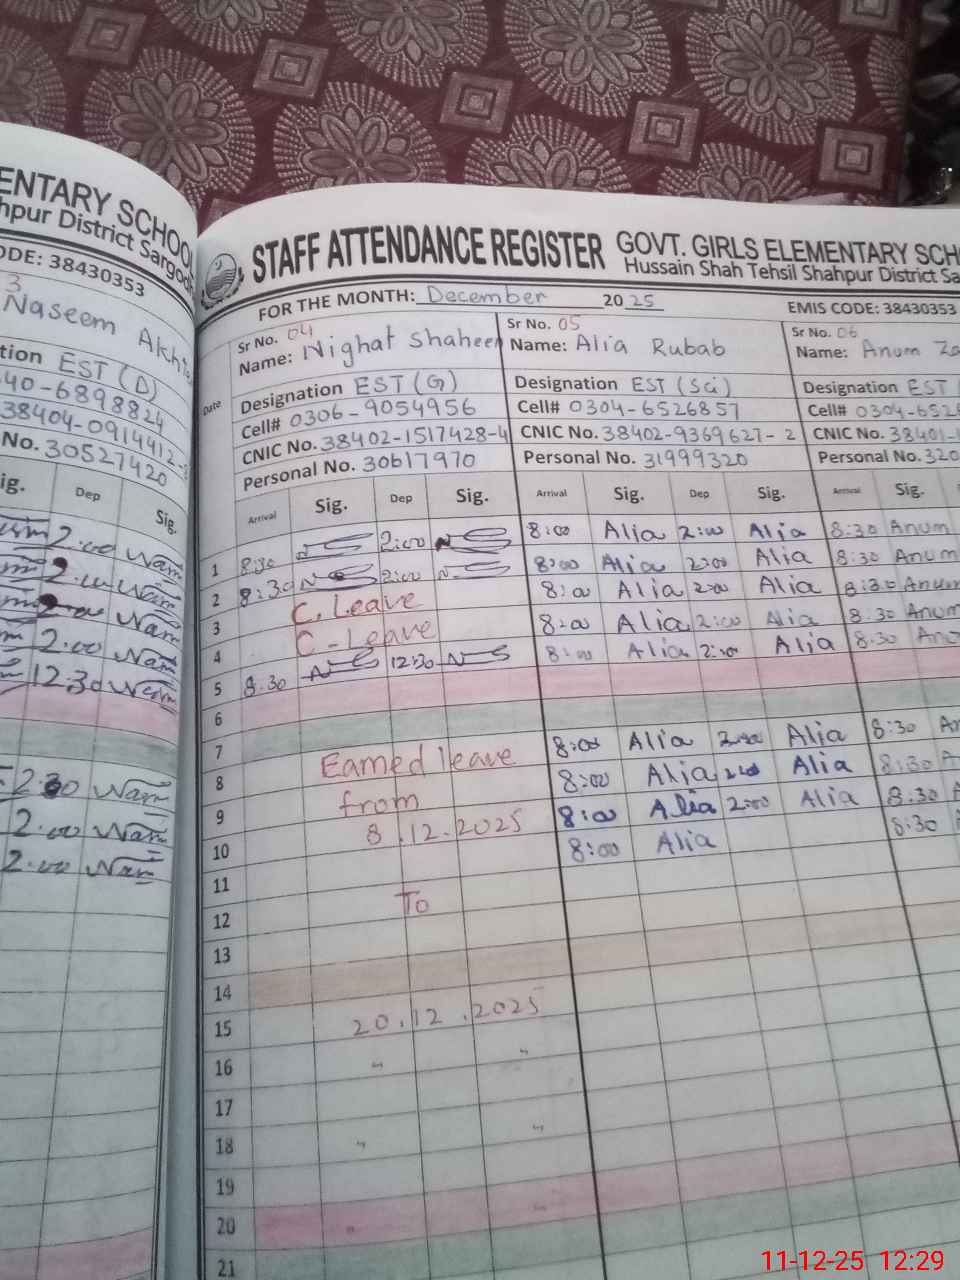 ENTARY SCHOOL
hpur District Sargod
ODE: 38430353
3
Naseem Akht
tion EST (D)
40-6898824
38404-0914412-
No. 30527420
ig. Dep Sig.
2:00
2:00
2:00
12:30
2:30
2:00
2:00
STAFF ATTENDANCE REGISTER GOVT. GIRLS ELEMENTARY SCH
Hussain Shah Tehsil Shahpur District Sa
FOR THE MONTH: December 2025 EMIS CODE: 38430353
Date
Sr No. 04
Name: Nighat Shaheen
Designation EST (G)
Cell# 0306-9054956
CNIC No. 38402-1517428-4
Personal No. 30617970
Arrival Sig. Dep Sig.
Sr No. 05
Name: Alia Rubab
Designation EST (Sci)
Cell# 0304-6526857
CNIC No. 38402-9369627-2
Personal No. 31999320
Arrival Sig. Dep Sig.
Sr No. 06
Name: Anum Za
Designation EST
Cell# 0304-652
CNIC No. 38401-
Personal No. 320
Arrival Sig.
1 8:30 2:00 8:00 Alia 2:00 Alia 8:30 Anum
2 8:30 2:00 8:00 Alia 2:00 Alia 8:30 Anum
3 C. Leave 8:00 Alia 2:00 Alia 8:30 Anum
4 C-Leave 8:00 Alia 2:00 Alia 8:30 Anum
5 8:30 12:30 8:00 Alia 2:00 Alia 8:30 Anu
6
7
8 Earned leave 8:00 Alia 2:00 Alia 8:30 An
9 from 8:00 Alia 2:00 Alia 8:30 A
10 8.12.2025 8:00 Alia 2:00 Alia 8:30 A
11 8:00 Alia 8:30 A
12 To
13
14
15 20.12.2025
16 " "
17
18 " "
19
20 " "
21
11-12-25 12:29